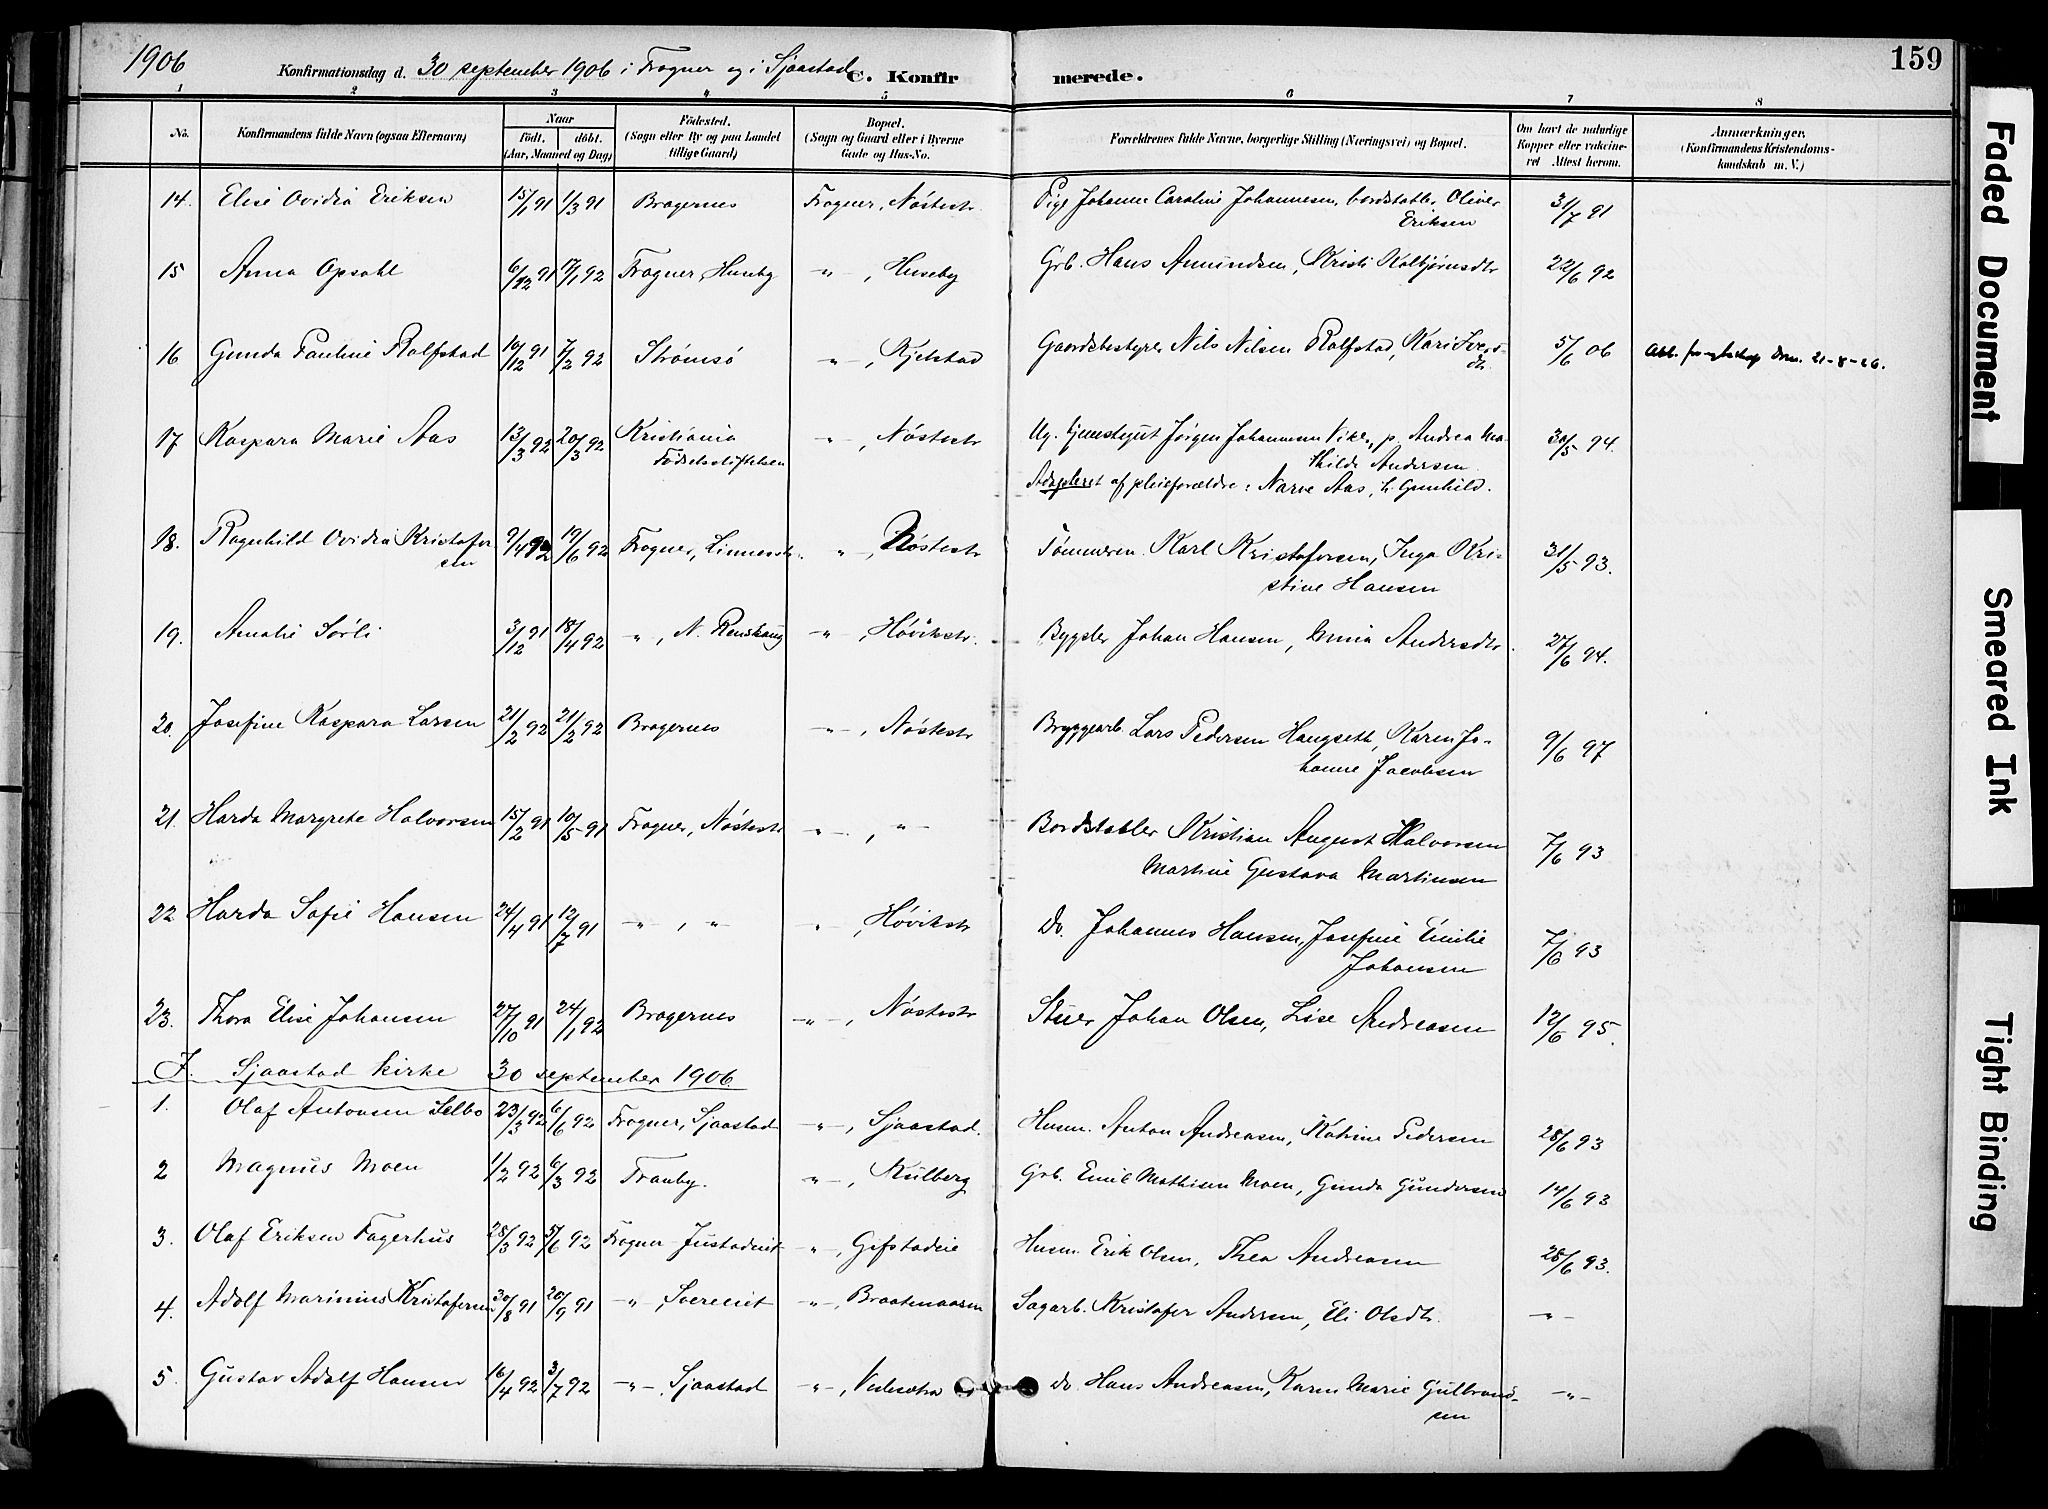 1906 Konfirmationsdag d. 30 september 1906 i Frogner og i Sjaastad C. Konfirmerede. 159
1 2 3 4 5 6 7 8
No. Konfirmandens fulde Navn (ogsaa Efternavn) Naar Født. døbt. (Aar, Maaned og Dag) Fødested. (Sogn eller By og paa Landet tillige Gaard) Bopæl. (Sogn og Gaard eller i Byerne Gade og Hus-No. Forældrenes fulde Navne, borgerlige Stilling (Næringsvei) og Bopæl. Om havt de naturlige Kopper eller vaccineret Attest herom. Anmærkninger. (Konfirmandens Kristendomskundskab m. V.)
14. Elise Ovidia Eriksen 15/1 91 1/3 91 Bragernes Frogner, Nøstestr. Pige Johanne Caroline Johannesen, bordstabler Oliver 31/7 91
Eriksen
15 Anna Opsahl 6/12 91 17/1 92 Frogner, Huseby -"-, Huseby Grb. Hans Amundsen, Kristi Kolbjørnsdtr 22/6 92
16 Gunda Pauline Rolfstad 10/12 91 7/2 92 Strømsø -"-, Kjelstad Gaardsbestyrer Nils Nilsen Rolfstad, Kari Ivers- 5/6 06 21-8-26.
dtr.
17 Kaspara Marie Aas 13/3 92 20/3 92 Kristiania -"-, Nøstestr Ug. Tjenestegut Jørgen Johannesen Viker, p. Andrea Ma- 30/5 94.
Fødselsstiftelsen thilde Andersen
Adopteret af pleieforældre: Narve Aas, h. Gunhild.
18. Ragnhild Ovidia Kristofer 9/4 92 19/6 92 Frogner, Linnesstr. -"-, Nøstestr Tømmerm. Karl Kristofersen, Inga Kri- 31/5 93.
sen stine Hansen
19. Amalie Sørli 3/12 91 18/4 92 -"-, N. Renskaug -"-, Høvikstr. Bygsler Johan Hansen, Anna Andersdtr. 27/6 94.
20. Josefine Kaspara Larsen 21/2 92 21/2 92 Bragernes -"-, Nøstestr Bryggearb. Lars Pedersen Haugseth, Karen Jo- 9/6 97
hanne Jacobsen
21. Harda Margrete Halvorsen 15/2 91 10/5 91 Frogner, Nøstestr -"-, -"- Bordstabler Kristian August Halvorsen 7/6 93
Martine Gustava Martinsen
22 Harda Sofie Hansen 24/4 91 12/7 91 -"-, -"- -"-, Høvikstr Do. Johannes Hansen, Josefine Emilie 7/6 93
Johansen
23. Thora Elise Johansen 27/10 91 24/1 92 Bragernes -"-, Nøstestr Stuer Johan Olsen, Lise Andreasen 12/6 95.
I. Sjaastad kirke 30 september 1906.
1. Olaf Antonsen Selbo 23/3 92 6/6 92 Frogner, Sjaastad -"-, Sjaastad. Husm. Anton Andreasen, Katrine Pedersen 28/6 93
2 Magnus Moen 1/2 92 6/3 92 Tranby. -"-, Kulberg Grb. Emil Mathisen Moen, Gunda Gundersen 14/6 93
3. Olaf Eriksen Fagerhus 28/3 92 5/6 92 Frogner Justadeiet -"-, Gifstadeie Husm. Erik Olsen, Thea Andreasen 28/6 93.
4. Adolf Marinius Kristofersen 30/8 91 20/9 91 -"-, Svereeiet -"-, Braatenaasen Sagarb. Kristofer Andersen, Eli Olsdtr. -"-
5. Gustav Adolf Hansen 16/4 92 3/7 92 -"-, Sjaastad -"-, do. Hans Andreasen, Karen Marie Gulbrand- -"-
sen
Faded Document
Smeared Ink
Tight Binding